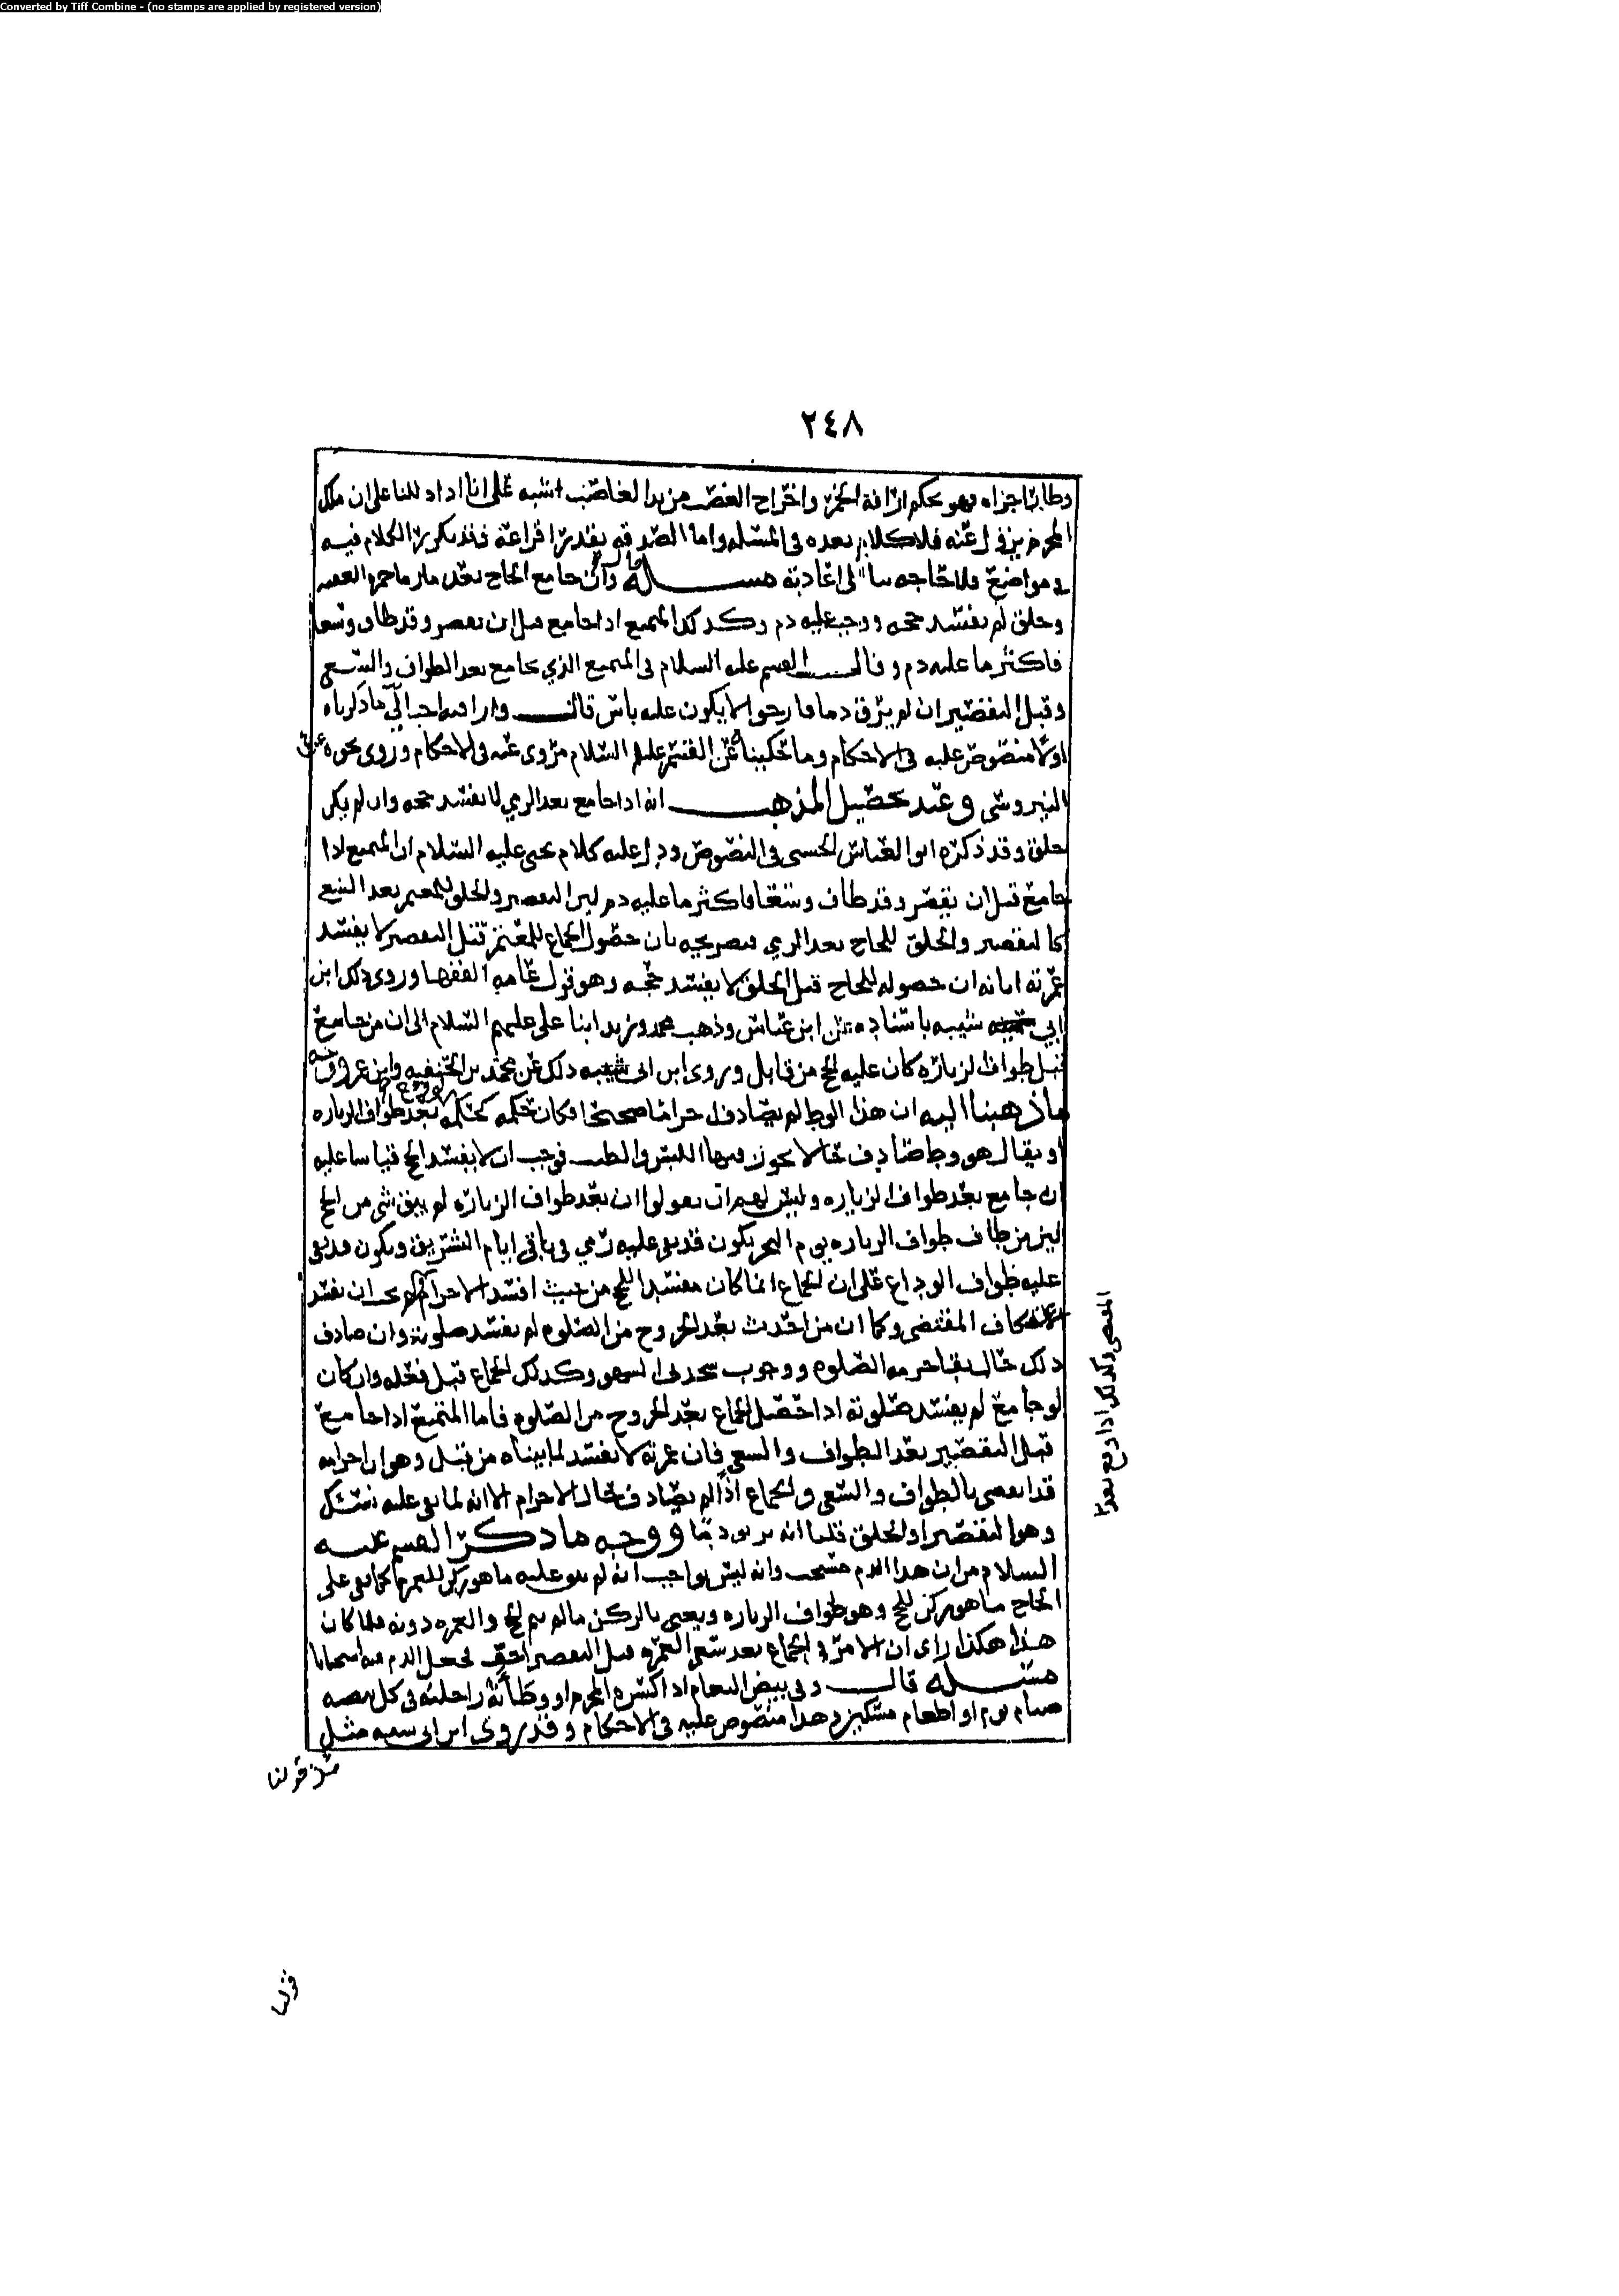 Converted by Tiff Combine - (no stamps are applied by registered version)
٢٤٨
وطابا جزاه فهو بحكم اراقة الخمر واخراج الغصب من يد الغاصب اشبه على انا اذا دللنا على ان ملك
المحرم يزول عنه فلا كلام بعده في المسئلة واما الصدقة بقدر افزاعه فقد تكرر الكلام فيه
في مواضع فلا حاجه بنا الى اعادته مسئلة قال وان جامع الحاج بعد ما رما جمرة العقبه
وحلق لم يفسد حجه ووجب عليه دم وكذلك المتمتع اذا جامع قبل ان يقصر وقد طاف وسعا
فاكثر ما عليه دم وقال القسم عليه السلام في المتمتع الذي يجامع بعد الطواف والسعي
وقبل التقصير ان لم يرق دما فارجوا الا يكون عليه باس قال واراقته احب الي ما ذكرناه
اولا منصوص عليه في الاحكام وما حكيناه عن القسم عليه السلام مروي عنه في الاحكام وروى نحوه عنه
النيروسي وعند تحصيل المذهب انه اذا جامع بعد الرمي لا يفسد حجه وان لم يكن
حلق وقد ذكره ابو العباس الحسني في النصوص ودل عليه كلام يحيى عليه السلام ان المتمتع اذا
جامع قبل ان يقصر وقد طاف وسعا فاكثر ما عليه دم لان التقصير والحلق للمعتمر بعد السعي
كالتقصير والحلق للحاج بعد الرمي فتصريحه بان حصول الجماع للمعتمر قبل التقصير لا يفسد
عمرته ابانه ان حصوله للحاج قبل الحلق لا يفسد حجه وهو قول عامه الفقها وروى ذلك ابن
ابي شيبه باسناده عن ابن عباس وذهب محمد وزيد ابنا علي عليهم السلام الى ان من جامع
قبل طواف الزياره كان عليه الحج من قابل وروى ابن ابي شيبه ذلك عن محمد بن الحنفيه وابن عمر ووجه
ما ذهبنا اليه ان هذا الوطء لم يصادف احراما صحيحا فكان حكمه كحكمه لو وقع بعد طواف الزياره
او يقال هو وطء صادف حالا يجوز فيها اللبس والطيب فوجب ان لا يفسد الحج قياسا عليه
ان جامع بعد طواف الزياره وليس لهم ان يقولوا ان بعد طواف الزياره لم يبق شي من الحج
لان من طاف طواف الزياره يوم النحر يكون قد بقي عليه رمي في باقي ايام التشريق ويكون قد بقي
عليه طواف الوداع على ان الجماع انما كان مفسدا للحج من حيث افسد الاحرام فلم يجب ان يفسد
المقتضى وكما ان من احدث بعد الخروج من الصلوه لم يفسد صلوته وان صادف
ذلك حال بقا حرمه الصلوه ووجوب سجدتي السهو وكذلك الجماع قبل فعله وان كان
لو جامع لم يفسد صلوته اذا حصل الجماع بعد الخروج من الصلوه فاما المتمتع اذا جامع
قبل التقصير بعد الطواف والسعي فان عمرته لا تفسد لما بيناه من قبل وهو ان احرامه
قد انقضى بالطواف والسعي والجماع اذا لم يصادف حال الاحرام الا انه لما بقي عليه نسك
وهو التقصير او الحلق قلنا انه يريق دما ووجه ما ذكره القسم عليه
السلام من ان هذا الدم مستحب وانه ليس بواجب انه لم يبق عليه ما هو ركن للعمره كما بقي على
الحاج ما هو ركن للحج وهو طواف الزياره ويعني بالركن ما لم يتم الحج والعمره دونه فلما كان
هذا هكذا راى ان الامر في الجماع بعد سعي العمره قبل التقصير اخف فجعل الدم فيه استحبابا
مسئلة قال وفي بيض النعام اذا اكسره المحرم او وطأته راحلته في كل بيضه
صيام يوم او اطعام مسكين وهذا منصوص عليه في الاحكام وقد روى ابن ابي شيبه مثل
مثل قولنا
قولنا
المقتضى وكذلك اذا وقع بعد